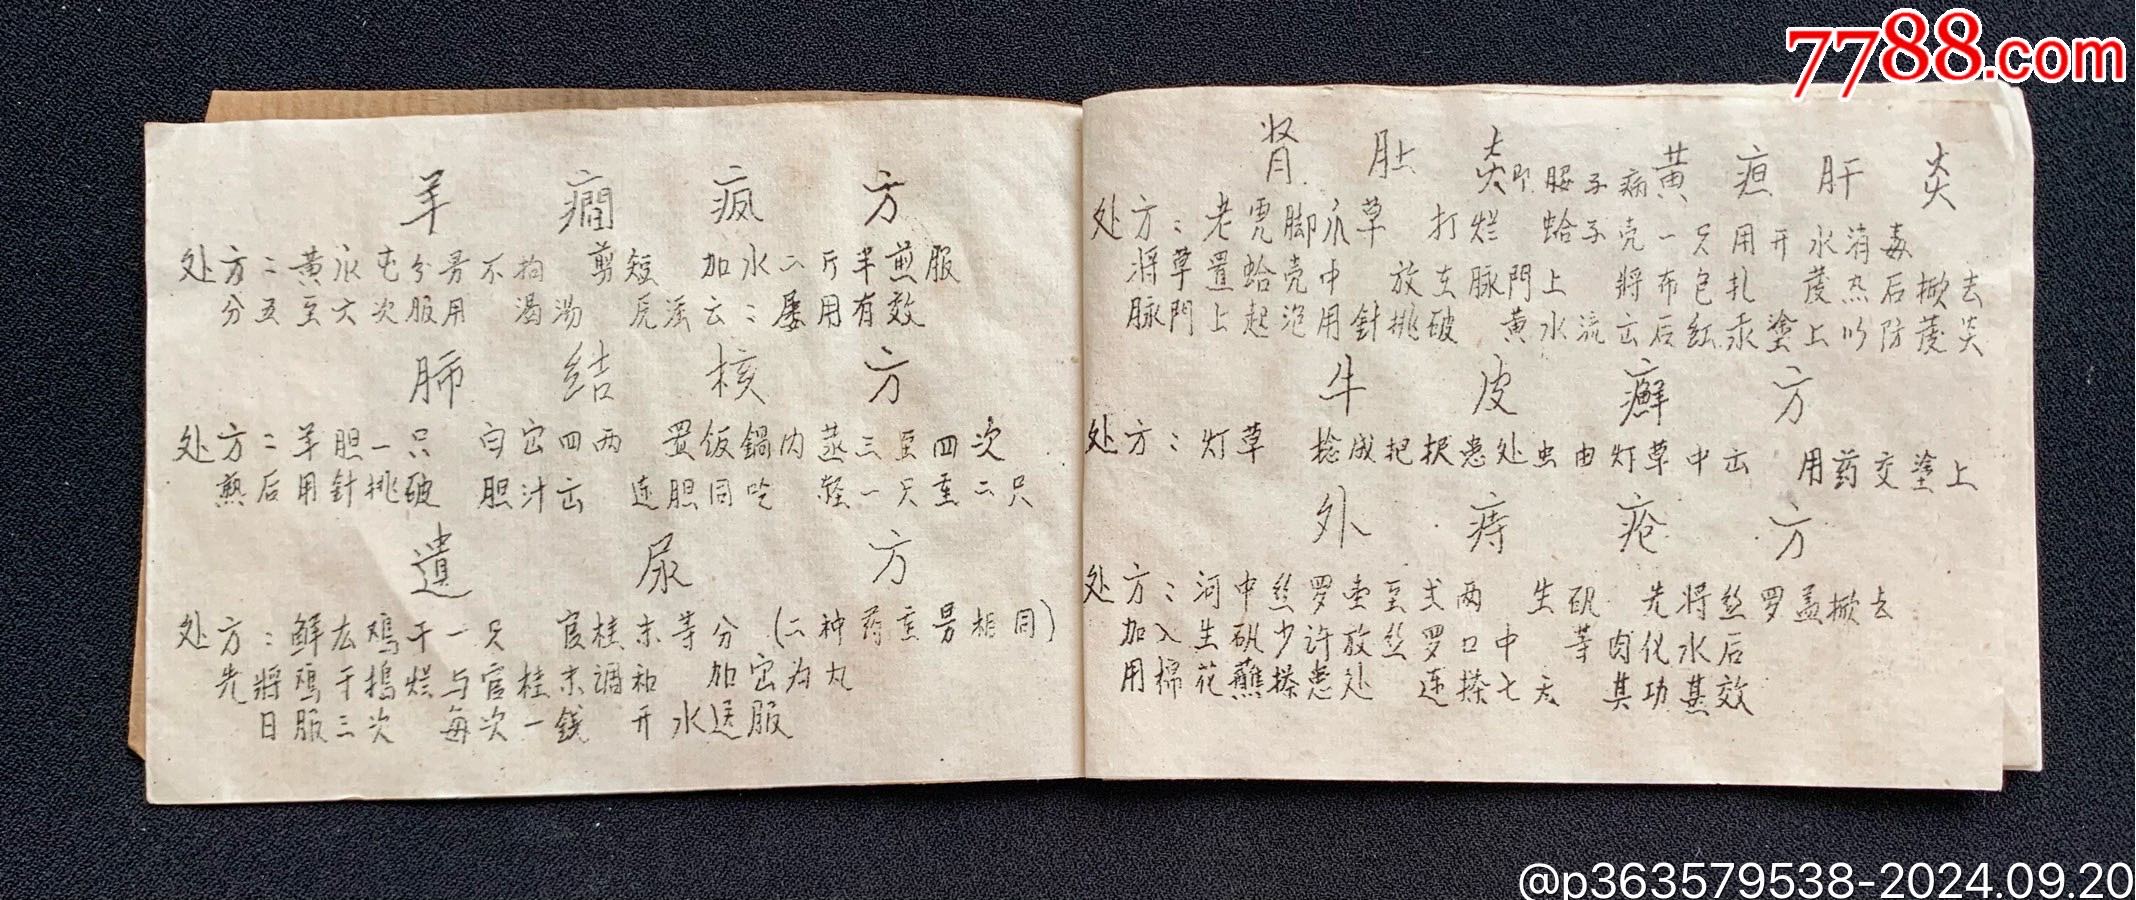 羊癇疯方
处方：黄瓜屯分另不拘 剪短 加水二斤半煎服
分五至六次服用 渴汤 屡用有效
肺结核方
处方：羊胆一只 白宻四两 置饭鍋内蒸三至四次
熟后用針挑破 胆汁出 连胆同吃 轻一只重二只
遺尿方
处方：鲜厷鸡干一只 官桂末等分（二种药重另相同）
先将鸡干搗烂与官桂末調和 加宻为丸
日服三次 每次一錢 开水送服
肾肚炎即腰子病黄疸肝炎
处方：老虎脚爪草 打烂 蛤子壳一只用开水消毒
將草置蛤壳中 放在脉門上 將布包扎 茷热后掀去
脉門上起泡用針挑破 黄水流出后红汞塗上以防茷炎
牛皮癬方
处方：灯草 捻成把捩患处虫由灯草中出 用药交塗上
外痔疮方
处方：河中丝罗壹至弍两 生矾 先將丝罗盖掀去
加入生矾少许放丝罗口中 等肉化水后
用棉花蘸搽患处 连搽七天 其功甚效
7788.com
@p363579538-2024.09.20